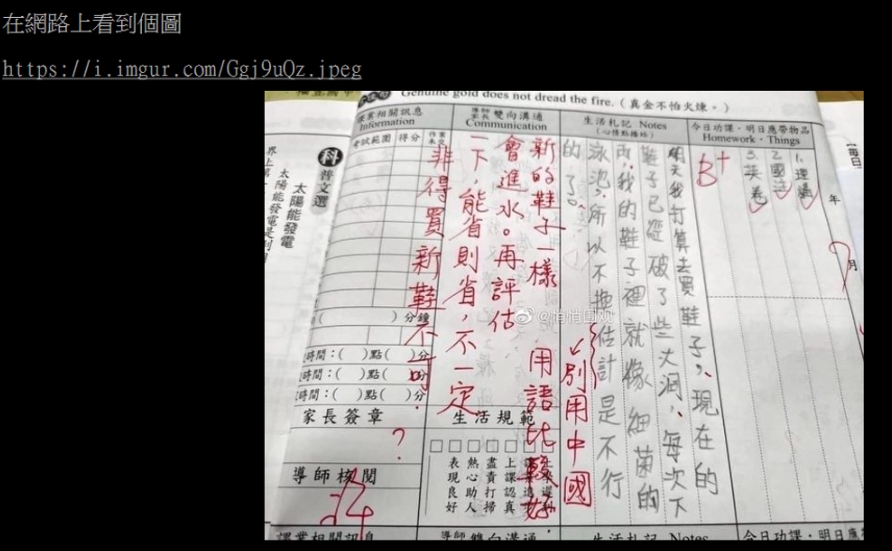 在網路上看到個圖
https://i.imgur.com/Ggj9uQz.jpeg
Genuine gold does not dread the fire.（真金不怕火煉。）
今日功課・明日應帶物品
Homework・Things
2.國
3.英卷
年
月
B+
生活札記 Notes
（心情點播站）
明天我打算去買鞋子，現在的
鞋子已經破了些大洞，每次下
雨，我的鞋子裡就像細菌的
泳池，所以不換估計是不行
的了。
別用中國
用語比較好
雙向溝通
Communication
新的鞋子一樣
會進水。再評估
一下，能省則省，不一定
非得買新鞋不可。
?
Information
考試範圍
得分
（ ）分鐘
時間：（ ）點（ ）分
時間：（ ）點（ ）分
時間：（ ）點（ ）分
生活規範
上課認真
盡責打掃
熱心助人
表現良好
家長簽章
導師核閱
科普文選
太陽能發電
太陽能發電是利
導師雙向溝通
生活札記 Notes